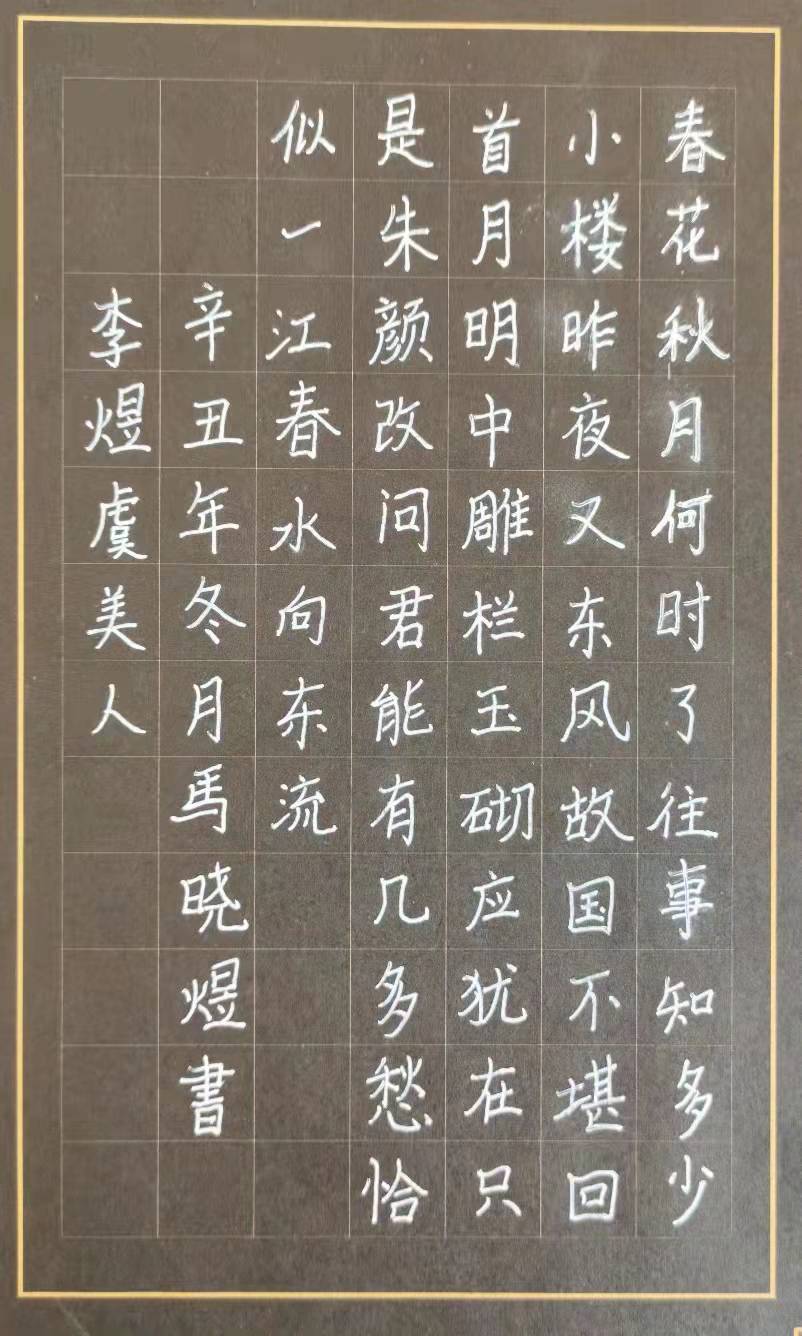 春花秋月何时了往事知多少
小楼昨夜又东风故国不堪回
首月明中雕栏玉砌应犹在只
是朱颜改问君能有几多愁恰
似一江春水向东流
辛丑年冬月馬晓煜書
李煜虞美人